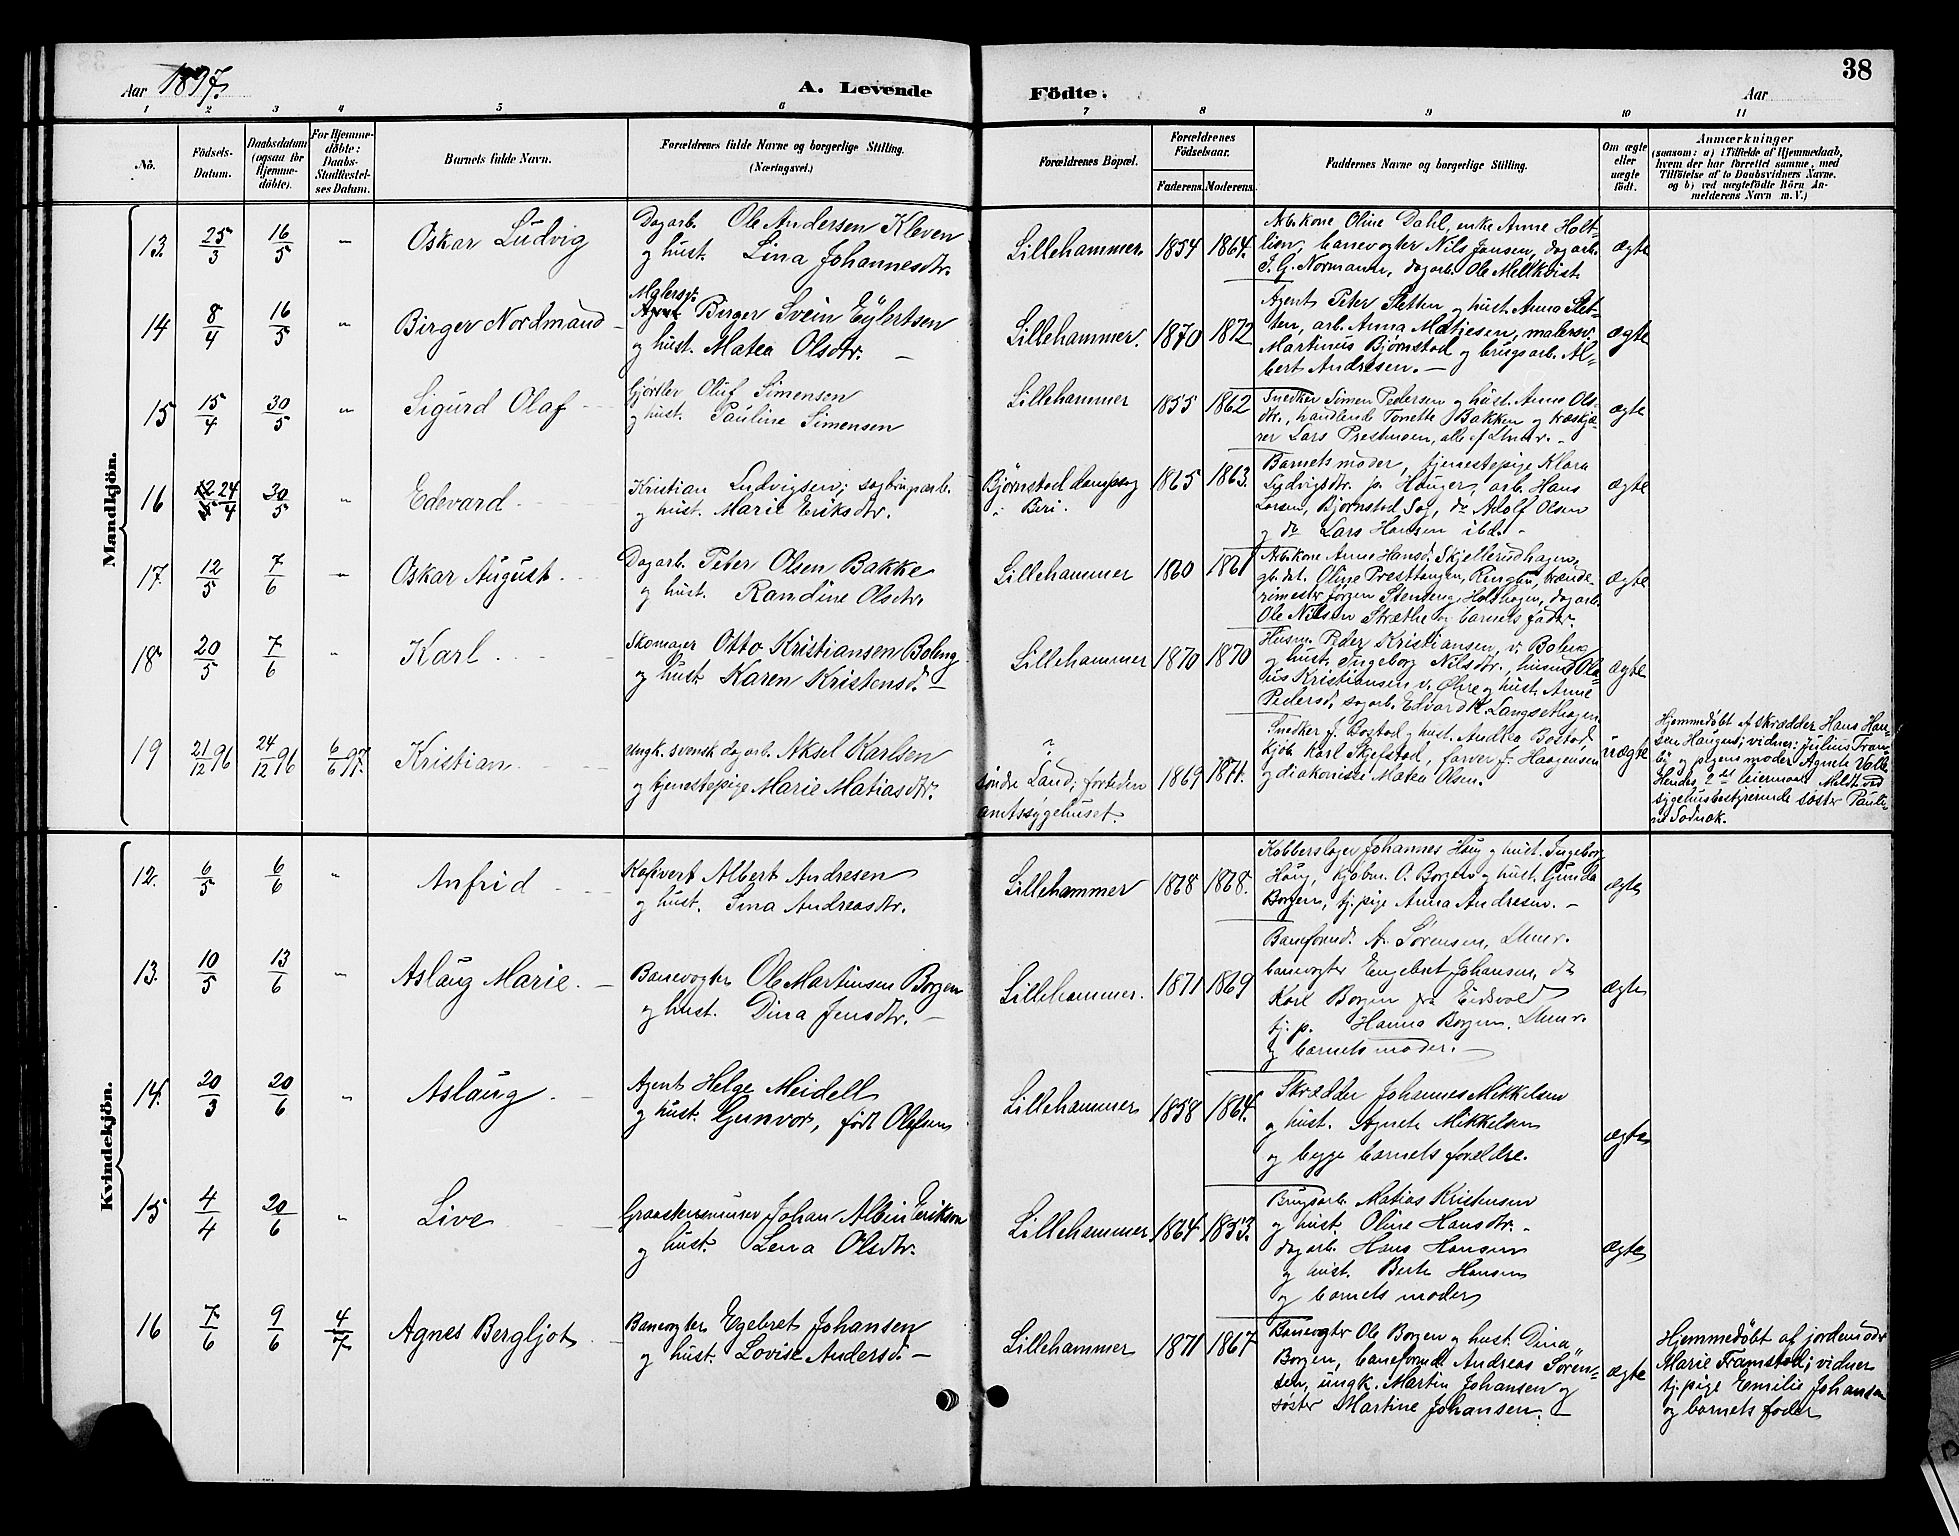 38
Aar 1897.
A. Levende Födte.
Aar
1 2 3 4 5 6 7 8 9 10 11
No.
Födsels-Datum.
Daabsdatum (ogsaa for Hjemme-döbte).
For Hjemme-döbte: Daabs-Stadfæstel-ses Datum.
Barnets fulde Navn.
Forældrenes fulde Navne og borgerlige Stilling. (Næringsvei.)
Forældrenes Bopæl.
Forældrenes Födselsaar.
Faderens. Moderens.
Faddernes Navne og borgerlige Stilling.
Om ægte eller uægte födt.
Anmærkninger
(saasom: a) i Tilfælde af Hjemmedaab,
hvem der har forrettet samme, med
Tilföielse af to Daabsvidners Navne.
og b) ved uægtefödte Börn An-
melderens Navn m. V.)
Mandkjön.
13. 25/3 16/5 " Oskar Ludvig
Dagarb. Ole Andersen Kleven
og hust. Lina Johannesdtr.
Lillehammer. 1854 1864.
Arb.kone Oline Dahl, enke Anne Holt-
lien, banevogter Nils Jansen, dagarb.
J. G. Normann, dagarb. Ole Mellkvist.
ægte
14 8/4 16/5 " Birger Nordmand
Malersv.
Agent Birger Svein Eylertsen
og hust. Matea Olsdtr.
Lillehammer. 1870 1872
Agent Peter Sletten og hust. Anna Slet-
ten, arb. Anna Matjesen, malersv.
Martinus Bjørnstad og brugsarb. Al-
bert Andresen.
ægte
15 15/4 30/5 " Sigurd Olaf
Gjørtler Oluf Simensen
og hust. Pauline Simensen
Lillehammer 1855 1862
Snedker Simen Pedersen og hust. Anne Ols-
dtr., handlende Tonette Bakken og træskjæ-
rer Lars Prestmoen, alle af Lhmr.
ægte
16 24/4 30/5 " Edevard
Kristian Ludvigsen, sagbrugsarb.
og hust. Marie Eriksdtr.
Bjørnstad
i Biri. 1865 1863.
Barnets moder, tjenestepige Klara
Ludvigsdtr. p. Hauger, arb. Hans
Larsen, Bjørnstad Sag, do Adolf Olsen
og do Lars Hansen ibd.
ægte
17. 12/5 7/6 " Oskar August
Dagarb. Peter Olsen Bakke
og hust. Randine Olsdtr.
Lillehammer 1860 1861
Arb.kone Anne Hansd. Skjellerudhagen,
gb.dat. Oline Presttangen, Ringbu, brænde-
rimester Jørgen Stenseng, Holthagen, dagarb.
Ole Nilsen Stræthe og barnets fader.
ægte
18. 20/5 7/6 " Karl
Skomager Otto Kristiansen Boleng
og hust. Karen Kristensd.
Lillehammer 1870 1870
Husm. Peder Kristiansen, v. Boleng
og hust. Ingeborg Nilsdtr., husmd Ola-
us Kristiansen v. Øvre og hust. Anne
Pedersd, sagarb. Edvard K. Langsethagen
ægte
19 21/12 96 24/12 96 6/6 97. Kristian
ungk. svensk dagarb. Aksel Karlsen
og tjenestepige Marie Matiasdtr.
?
søndre Land, fortiden
amtssygehuset. 1869 1871.
Snedker J. Bostad og hust. Andrea Bostad
kjøb. Karl Skjefstad, farver J. Haagensen
og diakonisse Matea Olsen.
uægte
Hjemmedøbt af skrædder Hans Han-
sen Haugen; vidner: Julius Fram-
by og plejens moder Agnete Valle
Hendes 2det leiermaal. Meldt ved
sygehusbestyrerinde søster Pauli-
ne Sodnok.
Kvindekjön.
12. 6/5 6/6 " Anfrid
Kafevert Albert Andresen
og hust. Lina Andreasdtr.
Lillehammer 1868 1868.
Kobberslager Johannes Haug og hust. Ingeborg
Haug, kjøbm. O. Borgen og hust. Gunda
Borgen, tj.pige Anna Andresen.
ægte
13. 10/5 13/6 " Aslaug Marie.
Banevogter Ole Martinsen Borgen
og hust. Dina Jensdtr.
Lillehammer. 1871 1869
Baneformd. A. Sørensen, Lhmr.
banevogter Engebret Johansen, do
Karl Borgen fra Eidsvold
tj. p. Hanna Borgen, Lhmr.
og barnets moder.
ægte
14. 20/3 20/6 " Aslaug
Agent Helge Meidell
og hust. Gunvor, født Olafsen
Lillehammer 1858 1864.
Skrædder Johannes Mikkelsen
og hust. Agnete Mikkelsen
og begge barnets forældre.
ægte
15 4/4 20/6 " Live
Graastensmurer Johan Albin Erikson
og hust. Lena Olsdtr.
Lillehammer 1864 1853.
Brugsarb. Matias Kristensen
og hust. Oline Hansdtr.
dagarb. Hans Hansen
og hust. Berte Hansen
og barnets moder
ægte
16 7/6 9/6 4/7 Agnes Bergljot
Banevogter Egebret Johansen
og hust. Lovise Andersd.
Lillehammer 1871 1867
Banevogter Ole Borgen og hust. Dina
Borgen, baneformd Andreas Søren-
sen, ungk. Martin Johansen og
søster Martine Johansen.
ægte
Hjemmedøbt af jordemoder
Marie Framstad; vidner
tj.pige Emilie Johansen
og barnets fader